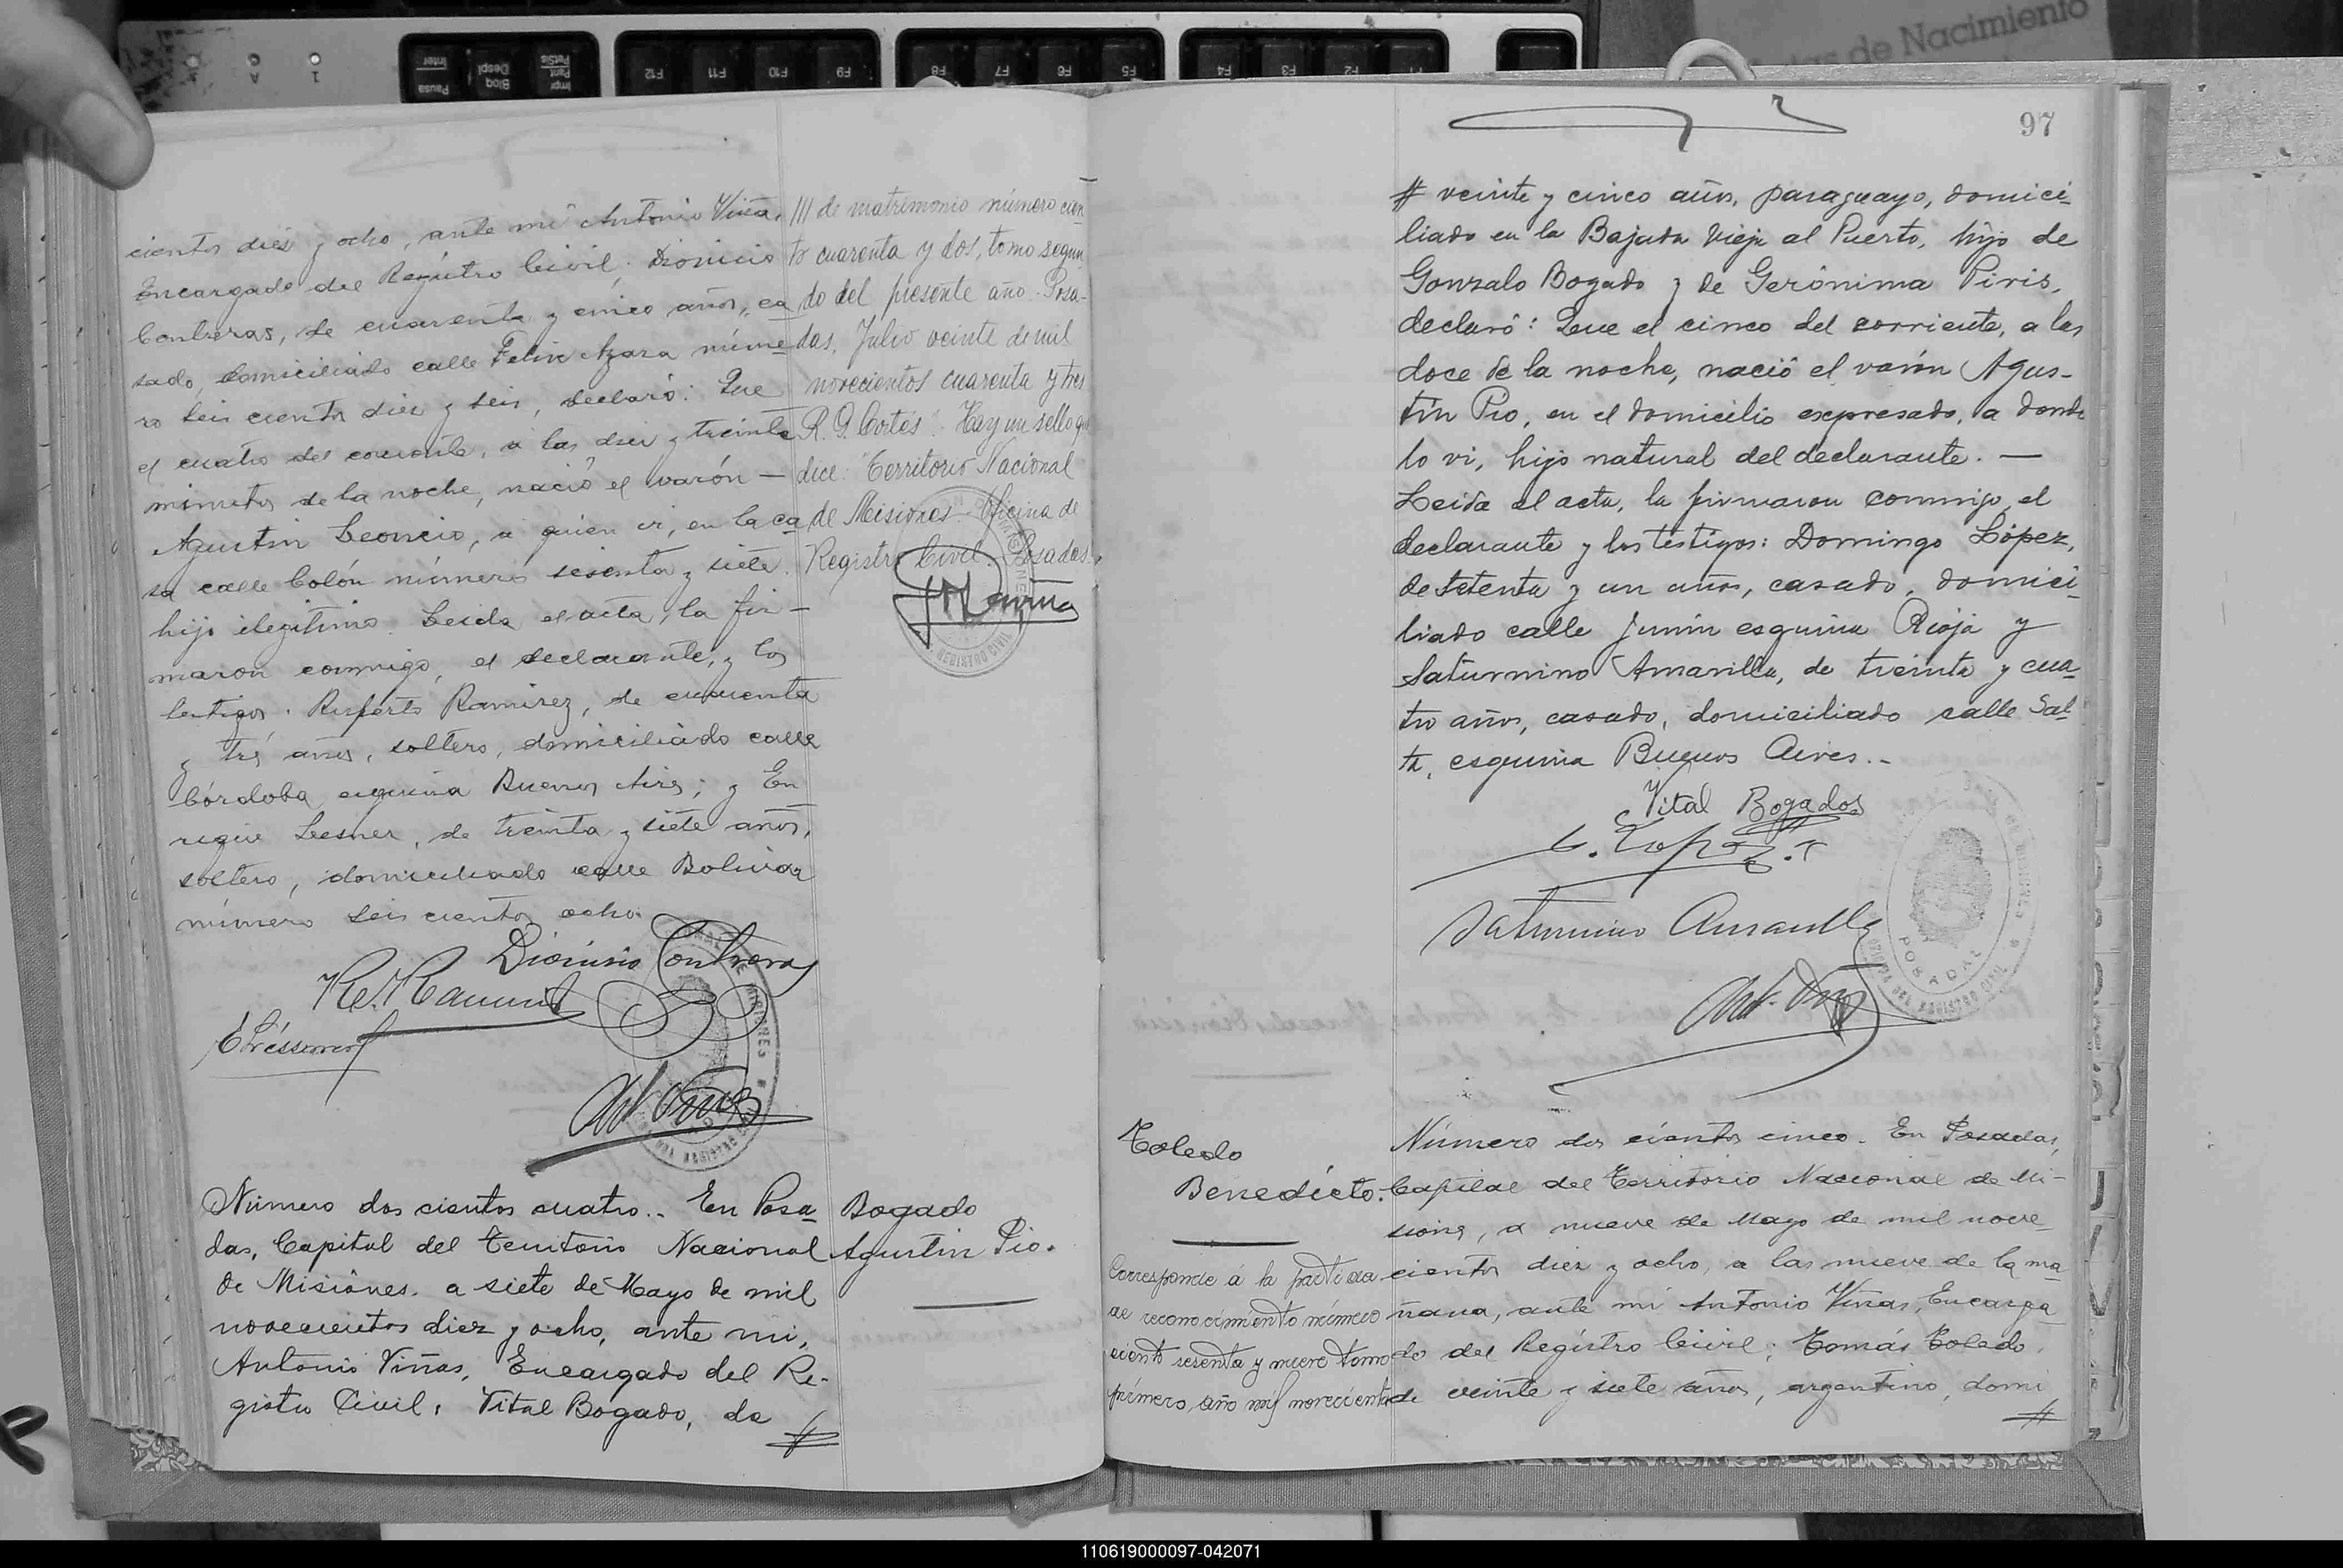 97
cientos diez y ocho, ante mi Antonio Viñas,
Encargado del Registro Civil; Dionicio
Contreras, de cuarenta y cinco años, ca
sado, domiciliado calle Felix Azara núme
ro seis cientos diez y seis, declaró: Que
el cuatro del corriente, a las diez y treinta
minutos de la noche, nació el varón —
Agustin Leoncio, a quien vi, en la ca
sa calle Colón número sesenta y siete.
hijo ilegitimo. Leida el acta, la fir-
maron conmigo, el declarante, y los
testigos: Ruperto Ramirez, de cuarenta
y tres años, soltero, domiciliado calle
Córdoba esquina Buenos Aires; y En
rique Lesner, de treinta y siete años,
soltero, domiciliado calle Bolivar
número seis cientos ocho.
Dionisio Contreras
/// de matrimonio número cien
to cuarenta y dos, tomo segun
do del presente año. Posa-
das, Julio veinte de mil
novecientos cuarenta y tres
R. G. Cortés". Hay un sello que
dice: "Territorio Nacional
de Misiones - Oficina de
Registro Civil. Posadas.
REGISTRO CIVIL
Número dos cientos cuatro.. En Posa
das, Capital del Territorio Nacional
de Misiones. a siete de Mayo de mil
novecientos diez y ocho, ante mi,
Antonio Viñas, Encargado del Re-
gistro Civil, Vital Bogado, de #
Bogado
Agustin Pio.
# veinte y cinco años, paraguayo, domici
liado en la Bajada Vieja al Puerto, hijo de
Gonzalo Bogado y de Gerónima Piris,
declaró: Que el cinco del corriente, a las
doce de la noche, nació el varón Agus-
tín Pio, en el domicilio expresado, a donde
lo vi, hijo natural del declarante. —
Leida el acta, la firmaron conmigo, el
declarante y los testigos: Domingo López,
de setenta y un años, casado, domici
liado calle Junín esquina Rioja y
Saturnino Amarilla, de treinta y cua
tro años, casado, domiciliado calle Sal
ta, esquina Buenos Aires..-
Vital Bogados
Saturnino Amarilla
POSADAS
Toledo
Benedicto.
Corresponde á la partida
de reconocimiento número
ciento sesenta y nueve tomo
primero, año mil novecientos
Número dos cientos cinco. En Posadas,
Capital del Territorio Nacional de Mi-
siones, a nueve de Mayo de mil nove
cientos diez y ocho, a las nueve de la ma
ñana, ante mi Antonio Viñas, Encarga
do del Registro Civil; Tomás Toledo,
de veinte y siete años, argentino, domi
#
110619000097-042071